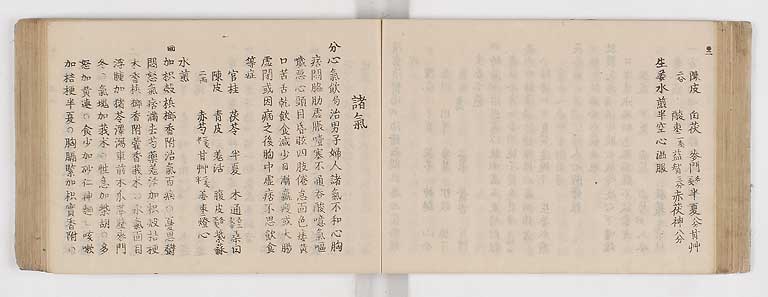 陳皮 白茯 麥門 半夏 甘艸
酸棗 益智 赤茯神 八分
生薑水煎半空心温服
諸氣
分心氣飲 治男子婦人諸氣不和心胸
痞悶脇肋虛脹噎塞不通呑酸噫氣嘔
噦惡心頭目昏眩四肢倦怠面色萎黃
口苦舌乾飲食減少日漸羸瘦或大腸
虛閉或因病之後胸中虛痞不思飲食
等症
官桂 茯苓 半夏 木通 桑白
陳皮 青皮 羌活 腹皮 紫蘇
赤芍 甘艸 姜棗燈心
水煎
加枳殼梹榔香附治氣百病
悶怒氣痞滿去芍藥羌活加枳殼桔梗
木香梹榔香附藿香莪朮 水氣面目
浮腫加猪苓澤瀉車前木瓜 麥門
冬 氣塊加莪朮 性急加柴胡 多
怒加黄連 食少加砂仁神麯 咳嗽
加桔梗半夏 胸膈緊加枳實香附